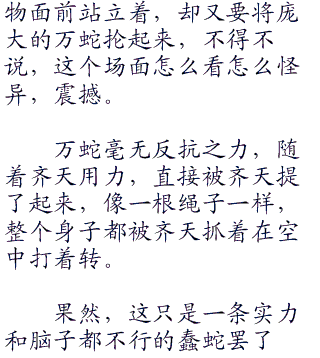 物面前站立着，却又要将庞
大的万蛇抡起来，不得不
说，这个场面怎么看怎么怪
异，震撼。
万蛇毫无反抗之力，随
着齐天用力，直接被齐天提
了起来，像一根绳子一样，
整个身子都被齐天抓着在空
中打着转。
果然，这只是一条实力
和脑子都不行的蠢蛇罢了